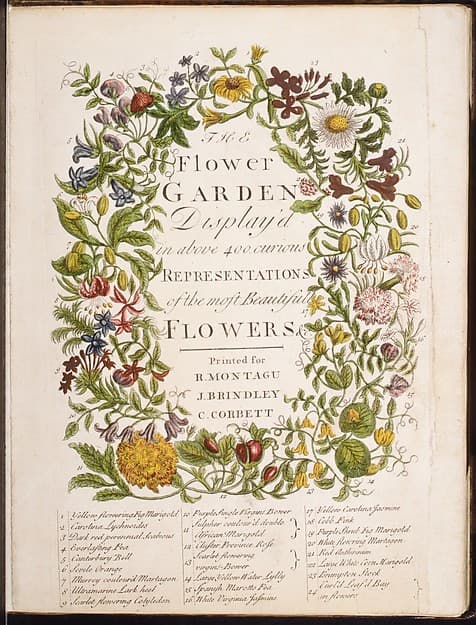 THE
Flower
GARDEN
Display'd
in above 400 curious
REPRESENTATIONS
of the most Beautiful
FLOWERS,
Printed for
R. MONTAGU
J. BRINDLEY
C. CORBETT
1 Yellow flowering Fig Marigold
2 Carolina Lychnoides
3 Dark red perennial
4 Everlasting Pea
5 Canterbury Bell
6 Sevile Orange
7 Murrey coulour'd Martagon
8 Ultramarine Lark heel
9 Scarlet flowering Cotyledon
10 Purple single Virgins Bower
11 Sulpher colour'd double
African Marigold
12 Cluster Provence Rose
13 Scarlet flowering
virgins-Bower
14 Large Yellow Water Lylly
15 Spanish Marotto Pea
16 White Virginia Jasmine
17 Yellow Carolina Jasmine
18 Cobb Pink
19 Purple Fig Marigold
20 White flowering Martagon
21 Red
22 Large White Corn Marigold
23 Brompton Stock
24 Curl'd Leaf'd Bay
in flowers